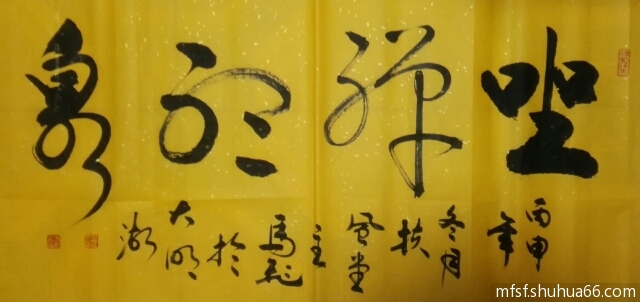 坐禅听泉
丙申年冬月扶风堂主馬於大明湖
mfsf.shuhua66.com